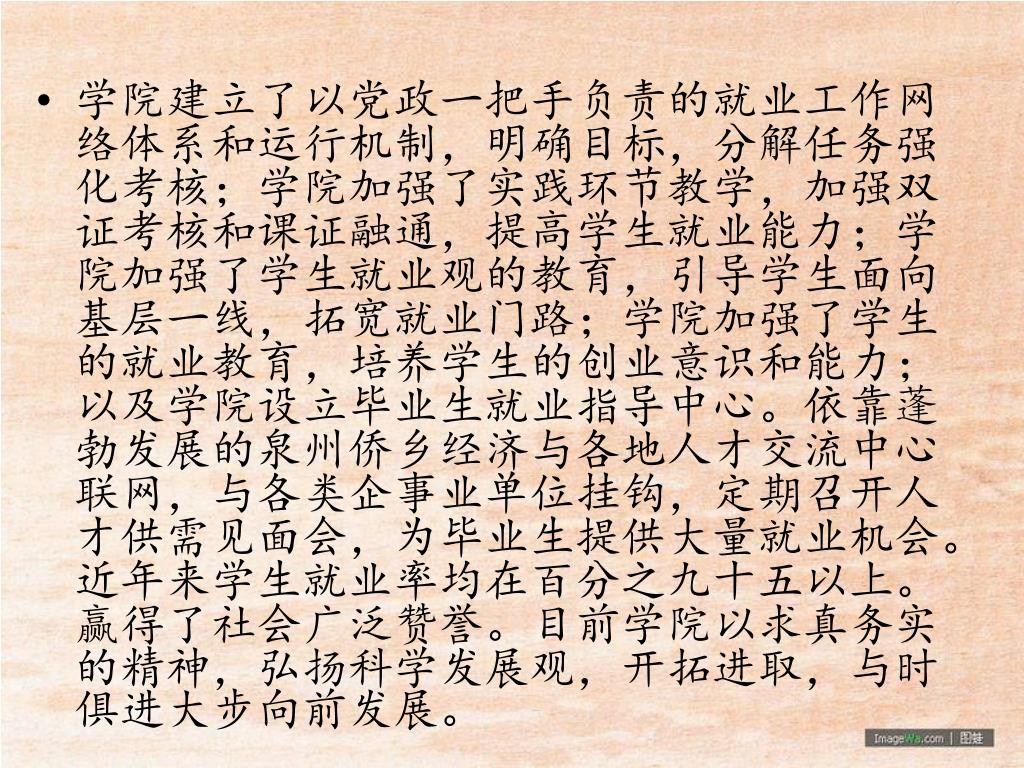 • 学院建立了以党政一把手负责的就业工作网
络体系和运行机制，明确目标，分解任务强
化考核；学院加强了实践环节教学，加强双
证考核和课证融通，提高学生就业能力；学
院加强了学生就业观的教育，引导学生面向
基层一线，拓宽就业门路；学院加强了学生
的就业教育，培养学生的创业意识和能力；
以及学院设立毕业生就业指导中心。依靠蓬
勃发展的泉州侨乡经济与各地人才交流中心
联网，与各类企事业单位挂钩，定期召开人
才供需见面会，为毕业生提供大量就业机会。
近年来学生就业率均在百分之九十五以上。
赢得了社会广泛赞誉。目前学院以求真务实
的精神，弘扬科学发展观，开拓进取，与时
俱进大步向前发展。
ImageWa.com | 图蛙